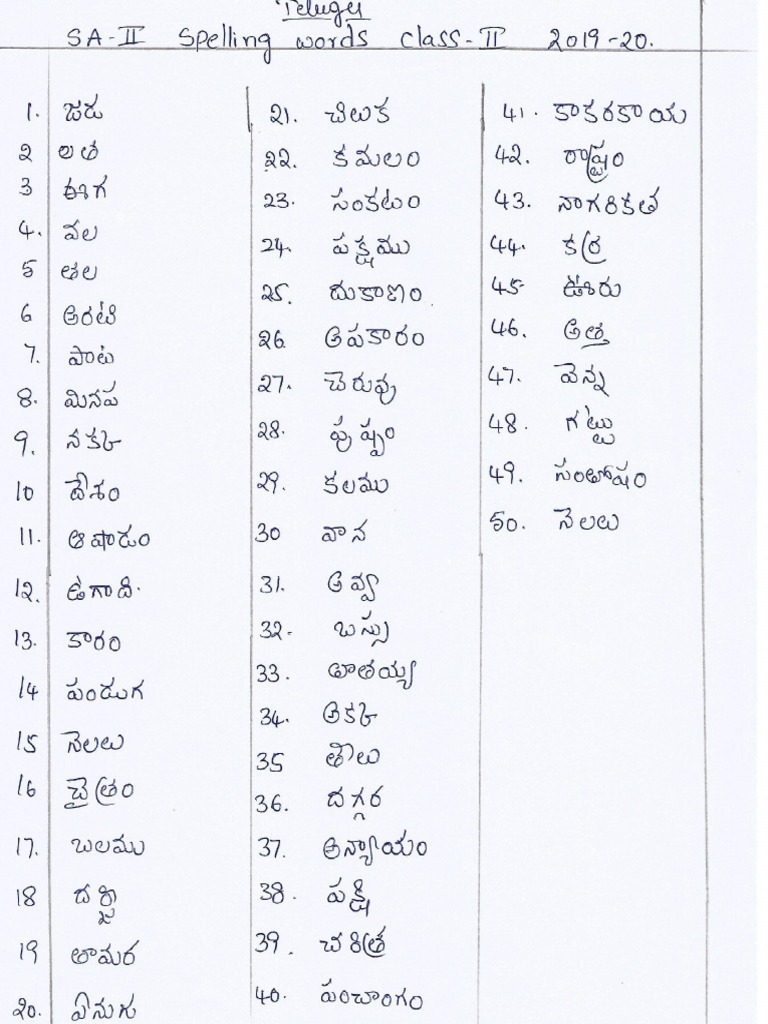 Telugu
SA-II Spelling words class-II 2019-20.
1. జడు
2 లత
3 ఈగ
4. వల
5 తల
6 అరటి
7. పాట
8. మినప
9. నక్క
10 దేశం
11. ఆషాడం
12. ఉగాది.
13. కారం
14 పండుగ
15 నెలలు
16 చైత్రం
17. బలము
18 దర్జీ
19 తామర
20. ఏనుగు
21. చిలుక
22. కమలం
23. సంకటం
24. పక్షము
25. దుకాణం
26 అపకారం
27. చెరువు
28. పుష్పం
29. కలము
30 వాన
31. అవ్వ
32. బస్సు
33. తాతయ్య
34. అక్క
35 తాలు
36. దగ్గర
37. అన్యాయం
38. పక్షి
39. చరిత్ర
40. పంచాంగం
41. కాకరకాయ
42. రాష్ట్రం
43. నాగరికత
44. కర్ర
45 ఊరు
46. అత్త
47. వెన్న
48. గట్టు
49. సంతోషం
50. నెలలు